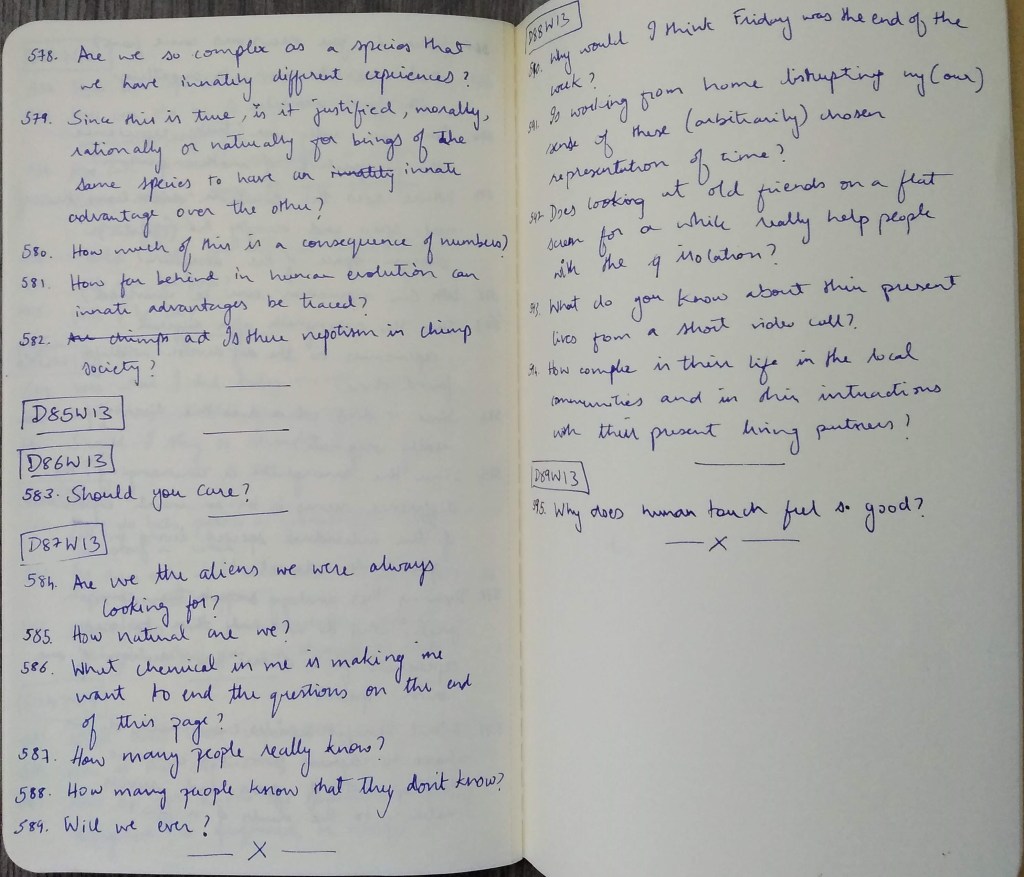 578. Are we so complex as a species that
we have innately different experiences?
579. Since this is true, is it justified, morally,
rationally or naturally for beings of the
same species to have an innately innate
advantage over the other?
580. How much of this is a consequence of numbers?
581. How far behind in human evolution can
innate advantages be traced?
582. Are chimps act Is there nepotism in chimp
society?
D85W13
D86W13
583. Should you care?
D87W13
584. Are we the aliens we were always
looking for?
585. How natural are we?
586. What chemical in me is making me
want to end the questions on the end
of this page?
587. How many people really know?
588. How many people know that they don't know?
589. Will we ever?
X
D88W13
590. Why would I think Friday was the end of the
week?
591. Is working from home disrupting my (our)
sense of these (arbitrarily) chosen
representation of time?
592. Does looking at old friends on a flat
screen for a while really help people
with the isolation?
593. What do you know about their present
lives from a short video call?
594. How complex is their life in the local
communities and in their interactions
with their present living partners?
D89W13
595. Why does human touch feel so good?
X